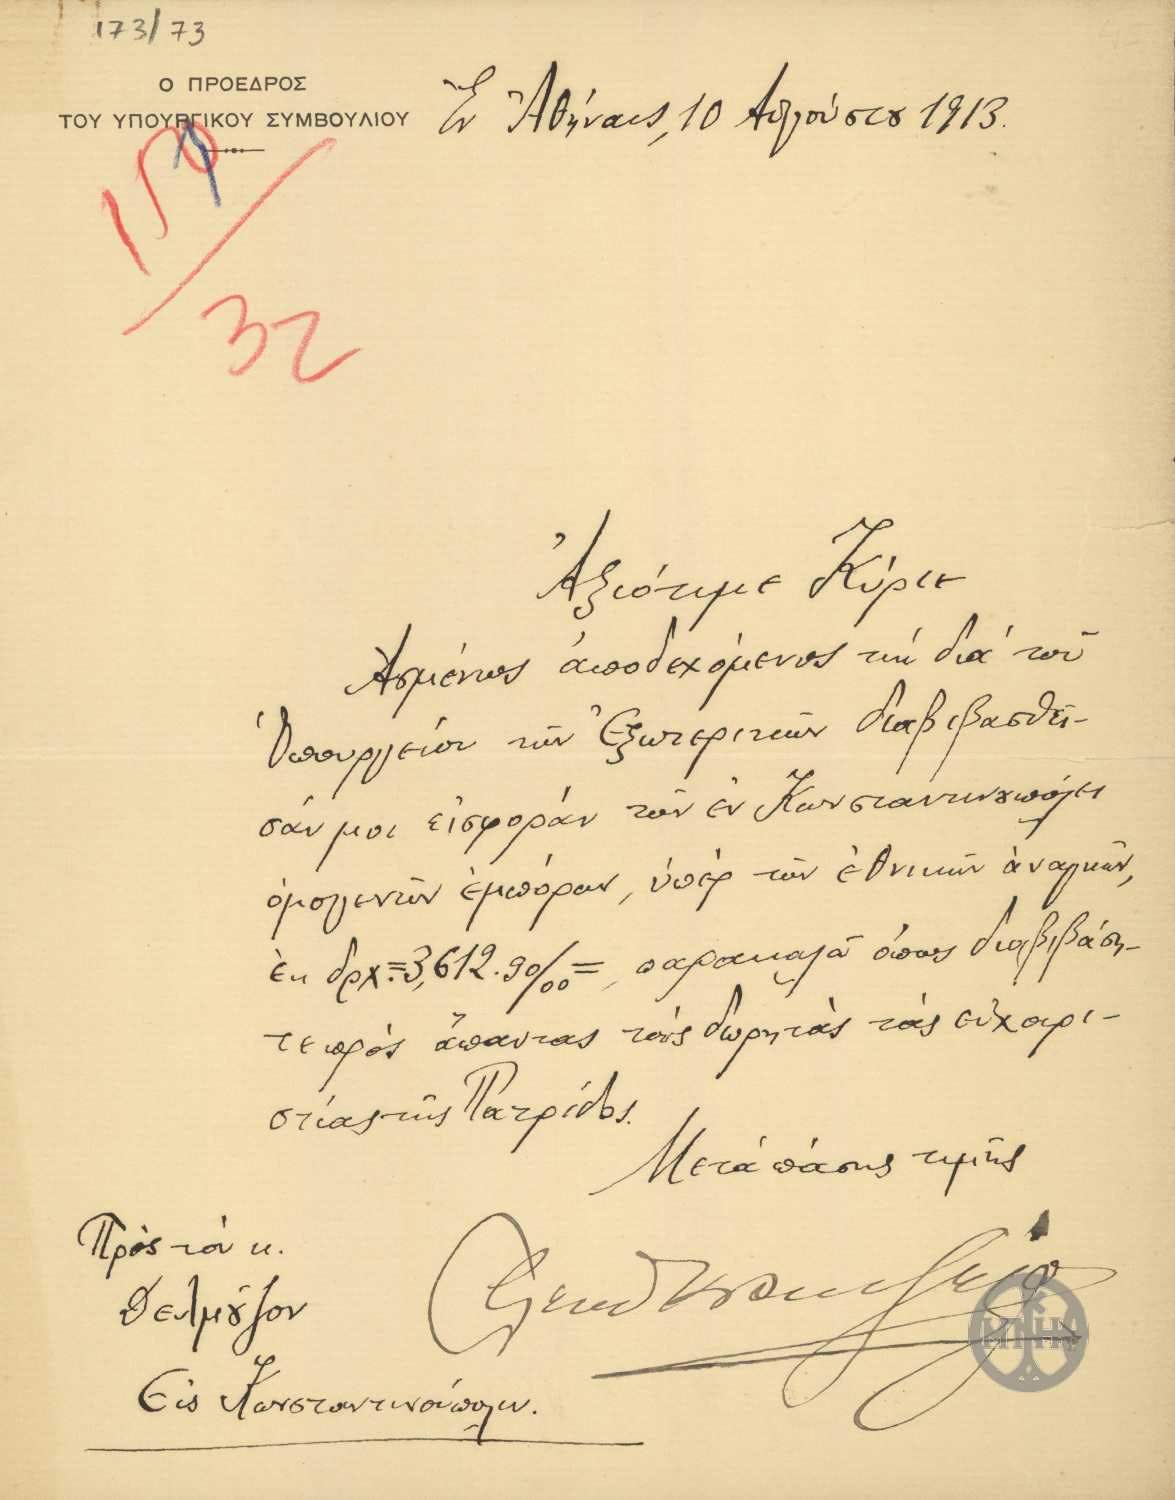 173/73
Ο ΠΡΟΕΔΡΟΣ
ΤΟΥ ΥΠΟΥΡΓΙΚΟΥ ΣΥΜΒΟΥΛΙΟΥ
Ἐν Ἀθήναις, 10 Αὐγούστου 1913.
32
Ἀξιότιμε Κύριε
Ἀσμένως ἀποδεχόμενος τὴν διὰ τοῦ
Ὑπουργείου τῶν Ἐξωτερικῶν διαβιβασθεῖ-
σάν μοι εἰσφορὰν τῶν ἐν Κωνσταντινουπόλει
ὁμογενῶν ἐμπόρων, ὑπὲρ τῶν ἐθνικῶν ἀναγκῶν,
ἐκ δρχ.=3,612.90/00=, παρακαλῶ ὅπως διαβιβάση-
τε πρὸς ἅπαντας τοὺς δωρητὰς τὰς εὐχαρι-
στίας τῆς Πατρίδος.
Μετὰ πάσης τιμῆς
Πρὸς τὸν κ.
Δελμοῦζον
Εἰς Κωνσταντινούπολιν.